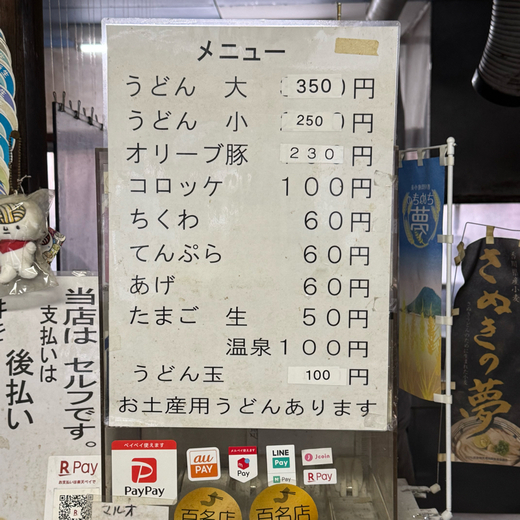 メニュー
うどん 大 350円
うどん 小 250円
オリーブ豚 230円
コロッケ 100円
ちくわ 60円
てんぷら 60円
あげ 60円
たまご 生 50円
温泉 100円
うどん玉 100円
お土産用うどんあります
当店は セルフです。
支払いは
後払い
さぬきの夢
夢
ペイペイ使えます
PayPay
au
PAY
Pay
LINE
Pay
J coin
R Pay
R Pay
Pay
百名店
百名店
マルオ